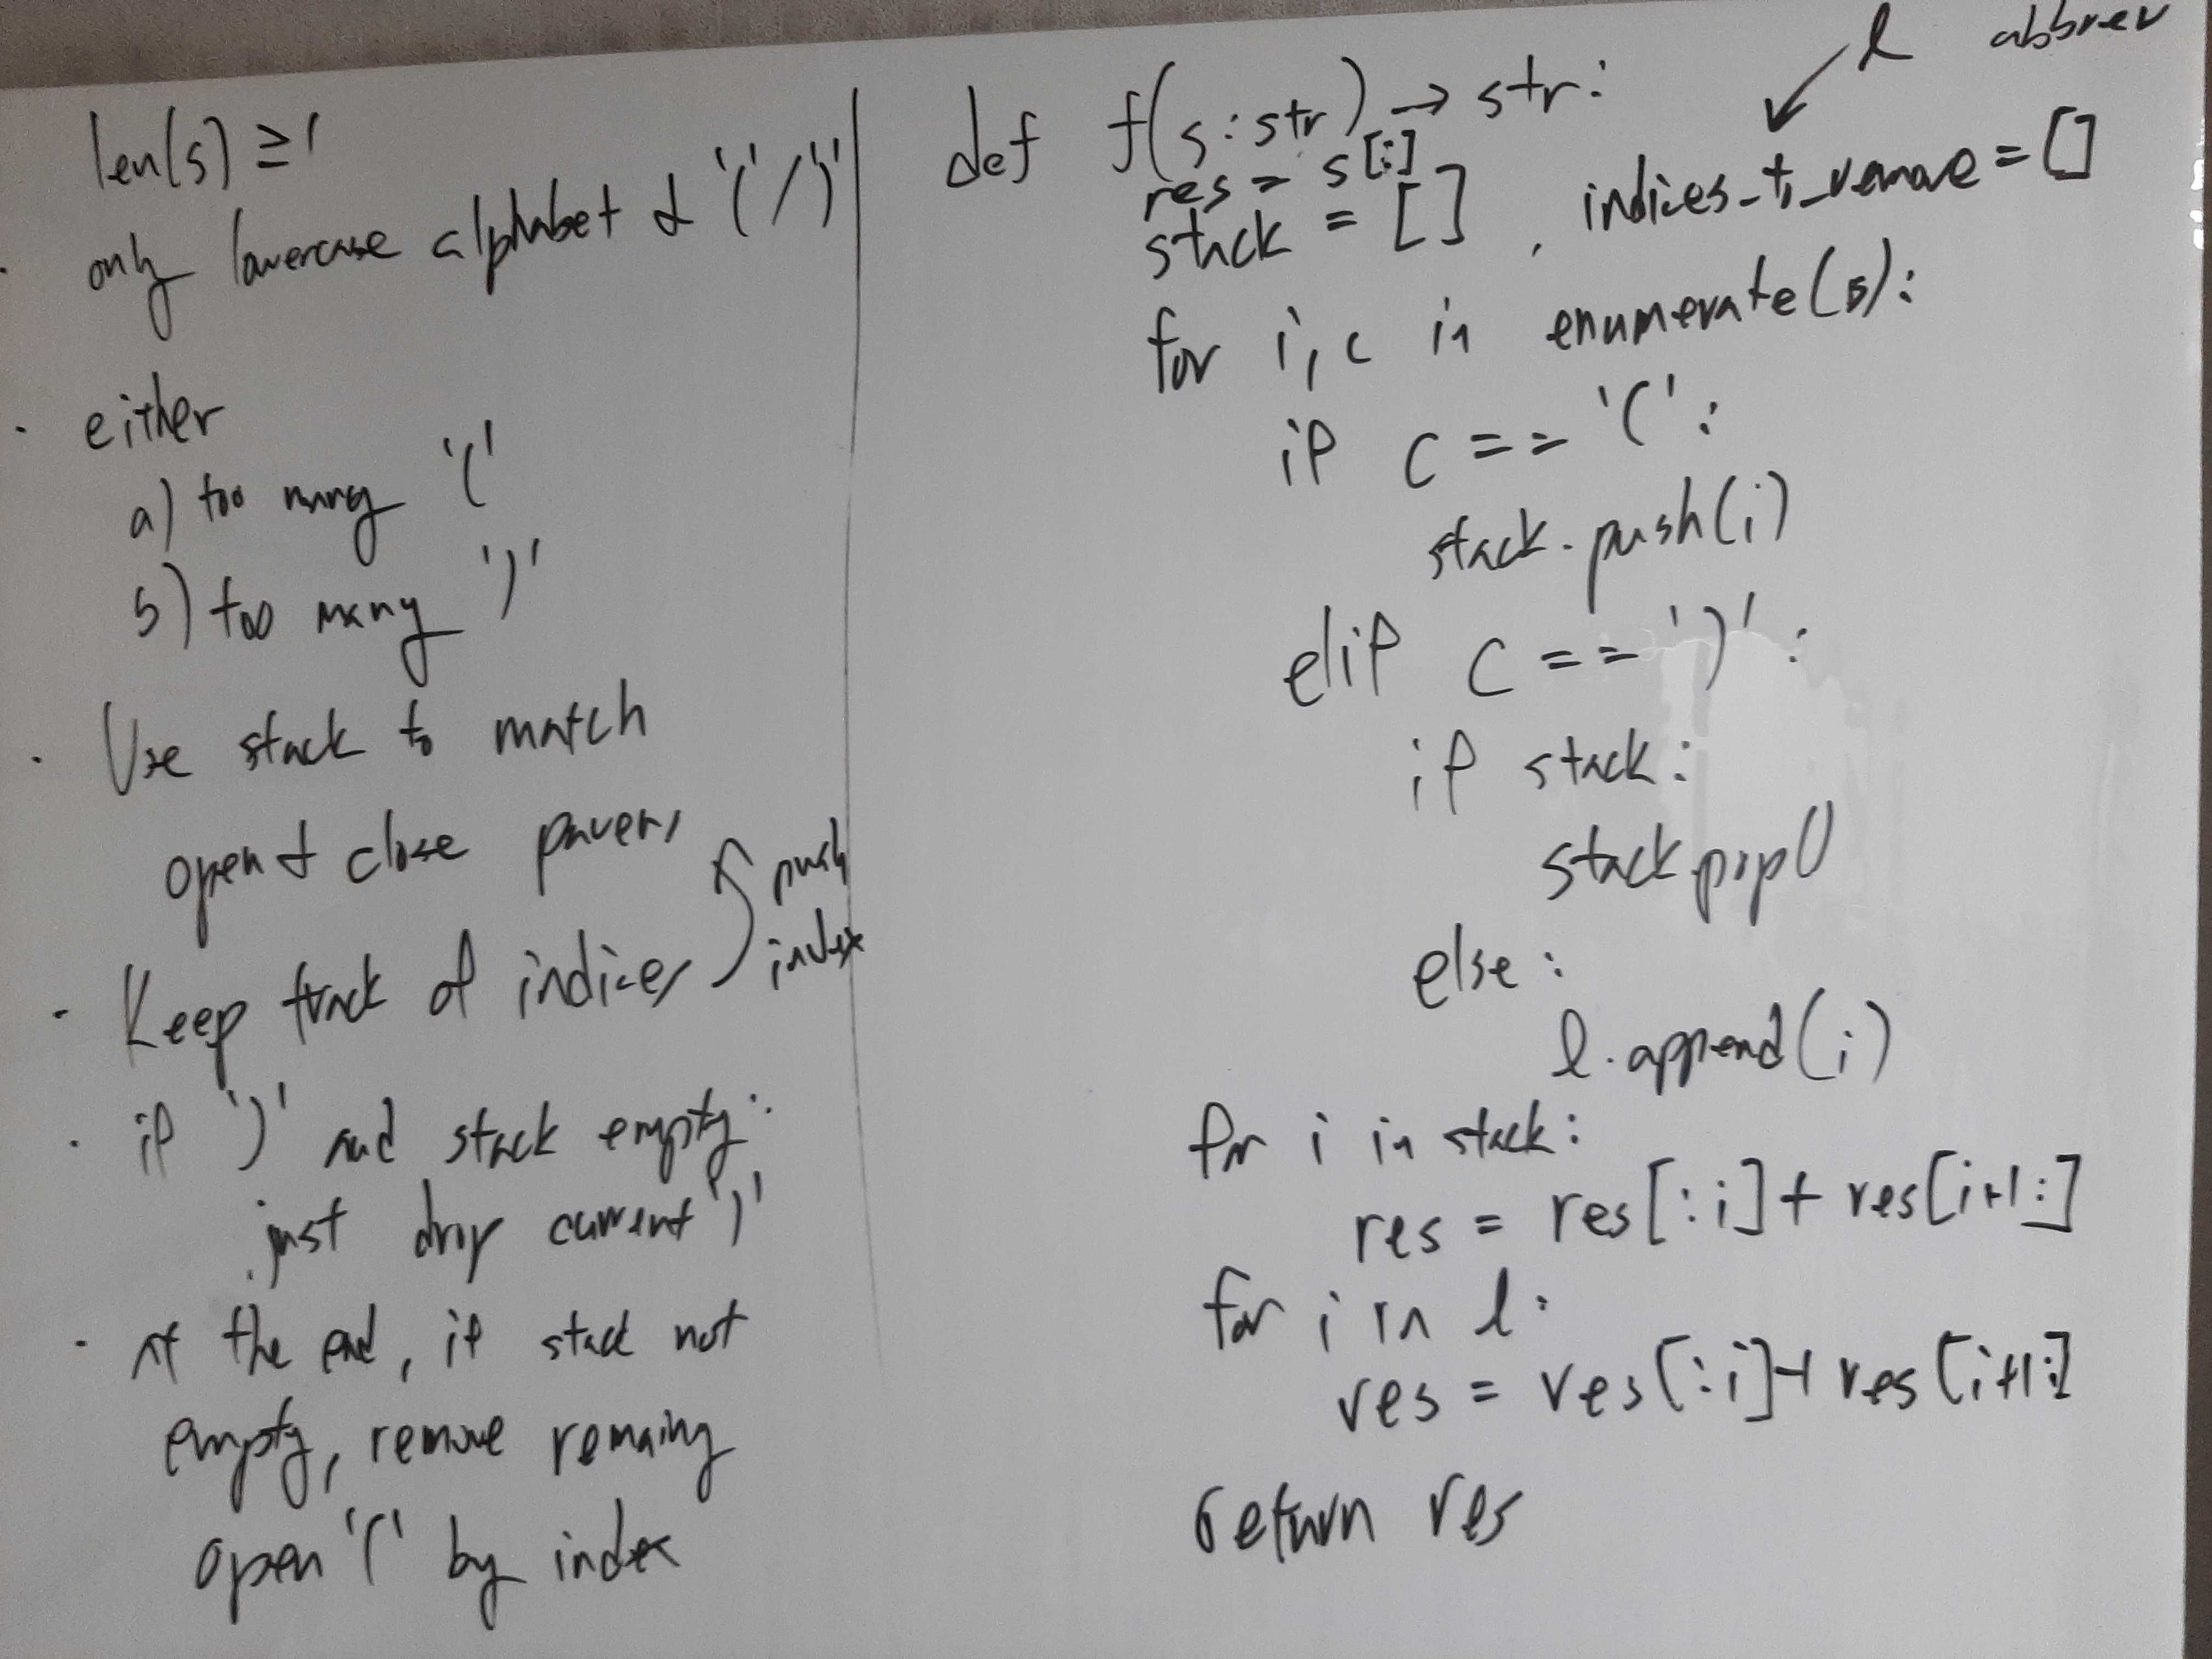 len(s) ≥ 1
· only lowercase alphabet & '(' / ')'
· either
a) too many '('
b) too many ')'
· Use stack to match
open & close parens
push
index
· Keep track of indices
· if ')' and stack empty:
just drop current ')'
· At the end, if stack not
empty, remove remaing
open '(' by index
l abbrev
def f(s:str) → str:
res = s[:]
stack = [] , indices_to_remove = []
for i, c in enumerate(s):
if c == '(':
stack.push(i)
elif c == ')':
if stack:
stack pop()
else:
l.append(i)
for i in stack:
res = res[:i] + res[i+1:]
for i in l:
res = res[:i] + res[i+1:]
return res